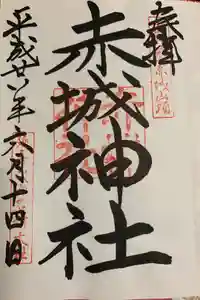 奉拝
赤城神社
平成廿八年六月十四日